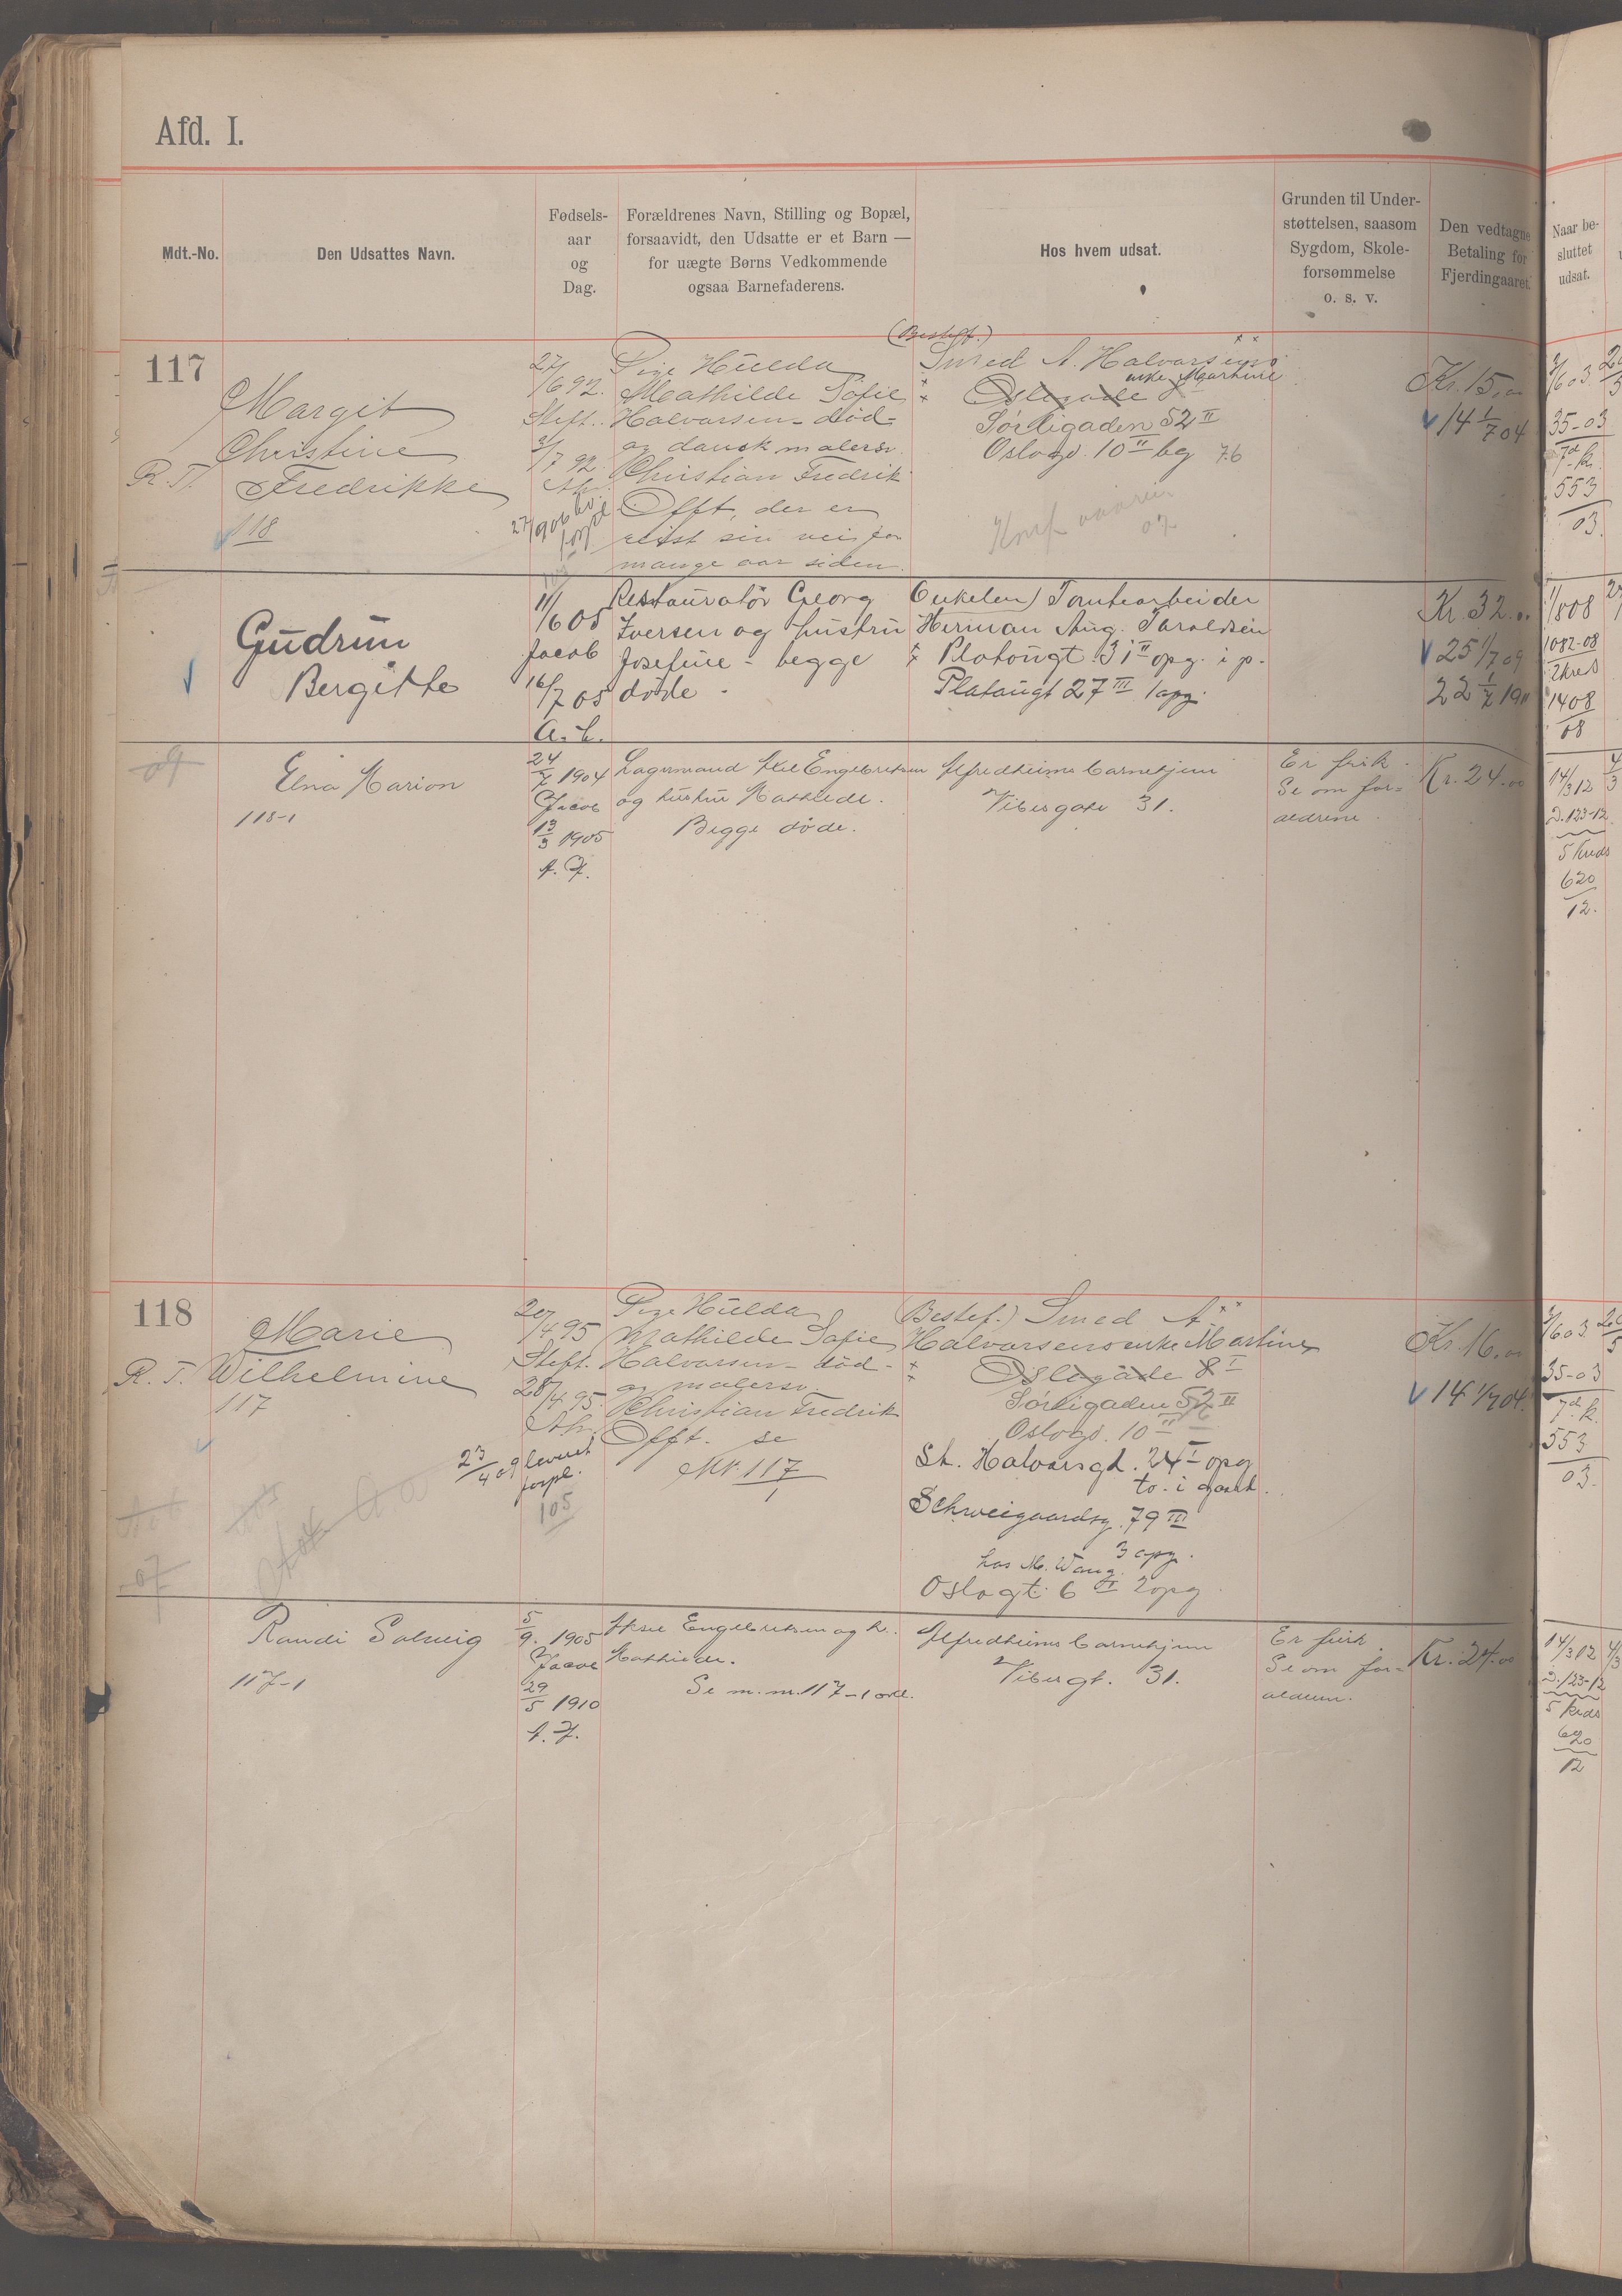 Afd. I.
Mdt.-No.
Den Udsattes Navn.
Fødsels-
aar
og
Dag.
Forældrenes Navn, Stilling og Bopæl,
forsaavidt, den Udsatte er et Barn —
for uægte Børns Vedkommende
ogsaa Barnefaderens.
Hos hvem udsat.
Grunden til Under-
støttelsen, saasom
Sygdom, Skole-
forsømmelse
o. s. v.
Den vedtagne
Betaling for
Fjerdingaaret.
Naar be-
sluttet
udsat.
117
Margit
Christine
R. T. Fredrikke
118
27/6 92.
Steft.
3/7 92.
Pige Hulda
Mathilde Sofie
Halvorsen - död -
og dansk malersv.
Christian Fredrik
Offt, der er
reist sin vei for
mange aar siden.
(Bestef.)
Smed A. Halvorsens
enke Martine
Oslogade
Sørligaden 52 II
Oslogd. 10 II bg 76
Konf vaaren
07
Kr. 15,00
14 1/7 04
3/6 03.
35-03
7de k.
553
03.
Gudrun
Bergitte
11/6 05
Jacob
16/7 05
A. L.
Restauratör Georg
Iversen og hustru
Josefine - begge
döde -
Onkelen) Tomtearbeider
Herman Aug. Haraldsen
Platougt 31 II opg. i p.
Platougt 27 III 1 opg.
Kr. 32.00
25 1/7 09
22 1/7 1911
1/8 08
1082-08
2kres
1408
08
09
Elna Marion
118-1
24/7 1904
Jacob
13/3 1905
Lagermand Aksel Engebretsen
og hustru Mathilde.
Begge döde.
Alfredheims barnehjem
Vibesgate 31.
Er frisk.
Se om for-
ældrene.
Kr. 24.00
14/3 12
D. 123-12
5 kreds
620
12.
118
Marie
R. T. Wilhelmine
117
20/4 95
Steft.
28/4 95.
23/4 09 levert
forpl.
105
Pige Hulda
Mathilde Sofie
Halvorsen - död -
og malersv.
Christian Fredrik
Offt. se
Mt. 117
1
Bestef.) Smed A
Halvorsens enke Martine
Oslogade 8 I
Sørligaden 52 II
Oslogd. 10 II
St. Halvorsgd. 24 I opg
to. i gaard.
Schweigaardsg. 79 III
3 opg.
hos M. Wang.
Oslogt. 6 II 2 opg
Kr. 16,00
14 1/7 04.
3/6 03
35-03
7de k.
553
03.
07
Randi Solveig
117-1
5/9. 1905
Jacob
29/5 1910
Aksel Engebretsen og h.
Mathilde.
Se m. nr. 117-1 ovf.
Alfredheims barnehjem
Vibesgt. 31.
Er frisk.
Se om for-
ældrene.
Kr. 24.00
14/3 12
D. 123-12
5 kreds
620
12